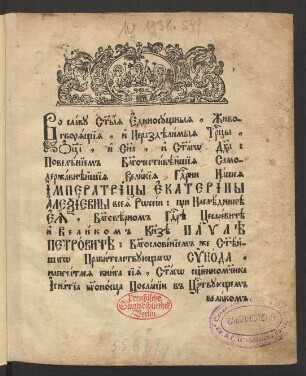 Ly 1938.549
Во славу Ст҃ыѧ Единосущныѧ, Живо-
творѧщїѧ, и Нераздѣлимыѧ Трⷪ҇цы,
Ѻ҆ц҃а, и Сн҃а, и Ст҃агѡ Дх҃а:
Повелѣнїемъ Бл҃гочестивѣйшїѧ Само-
державнѣйшїѧ Великїѧ Гдⷭ҇рни Нашеѧ
ІМПЕРАТРИЦЫ ЕКАТЕРИНЫ
АЛЕѮІЕВНЫ всеѧ Рѡссїи: при Наслѣдникѣ
ЕѦ, Бл҃говѣрномъ Гдⷭ҇рѣ Цесаревичѣ
и Великомъ Кн҃зѣ ПАУЛѢ
ПЕТРОВИЧѢ: Бл҃гословенїемъ же Ст҃ѣй-
шагѡ Правителствующагѡ СѴНОДА,
напечатасѧ книга сїѧ, Ст҃агѡ сщ҃енномꙋченика
Игнатїа бг҃оносца Посланїи въ Цртвꙋющемъ
великомъ
Preußische
Staatsbibliothek
Berlin.
БИБЛИОТЕКА